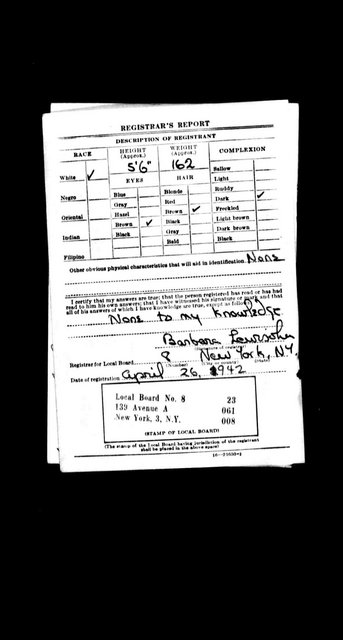 REGISTRAR'S REPORT
DESCRIPTION OF REGISTRANT
RACE HEIGHT (Approx.) WEIGHT (Approx.) COMPLEXION
5'6" 162
White ✓ EYES HAIR Sallow
Light
Negro Blue Blonde Ruddy
Gray Red Dark ✓
Oriental Hazel Brown ✓ Freckled
Brown ✓ Black Light brown
Indian Black Gray Dark brown
Bald Black
Filipino
Other obvious physical characteristics that will aid in identification None
I certify that my answers are true; that the person registered has read or has had
read to him his own answers; that I have witnessed his signature or mark and that
all of his answers of which I have knowledge are true, except as follows:
None to my knowledge
Barbara
(Signature of registrar)
Registrar for Local Board 8 New York, N.Y.
(Number) (City or county) (State)
Date of registration April 26, 1942
Local Board No. 8 23
139 Avenue A 061
New York, 3, N.Y. 008
(STAMP OF LOCAL BOARD)
(The stamp of the Local Board having jurisdiction of the registrant
shall be placed in the above space)